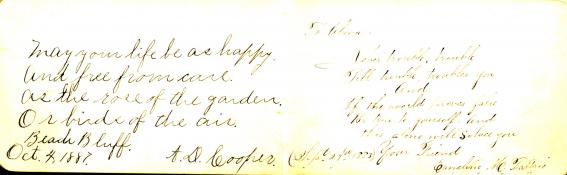 May your life be as happy.
And free from care.
As the rose of the garden.
Or birds of the air.
Beach Bluff.
Oct. 4, 1887. A. D. Cooper.
To
Never trouble, trouble
Till trouble, troubles you
And
If the world
to yourself and
this alone will
Your Friend
Emeline M.